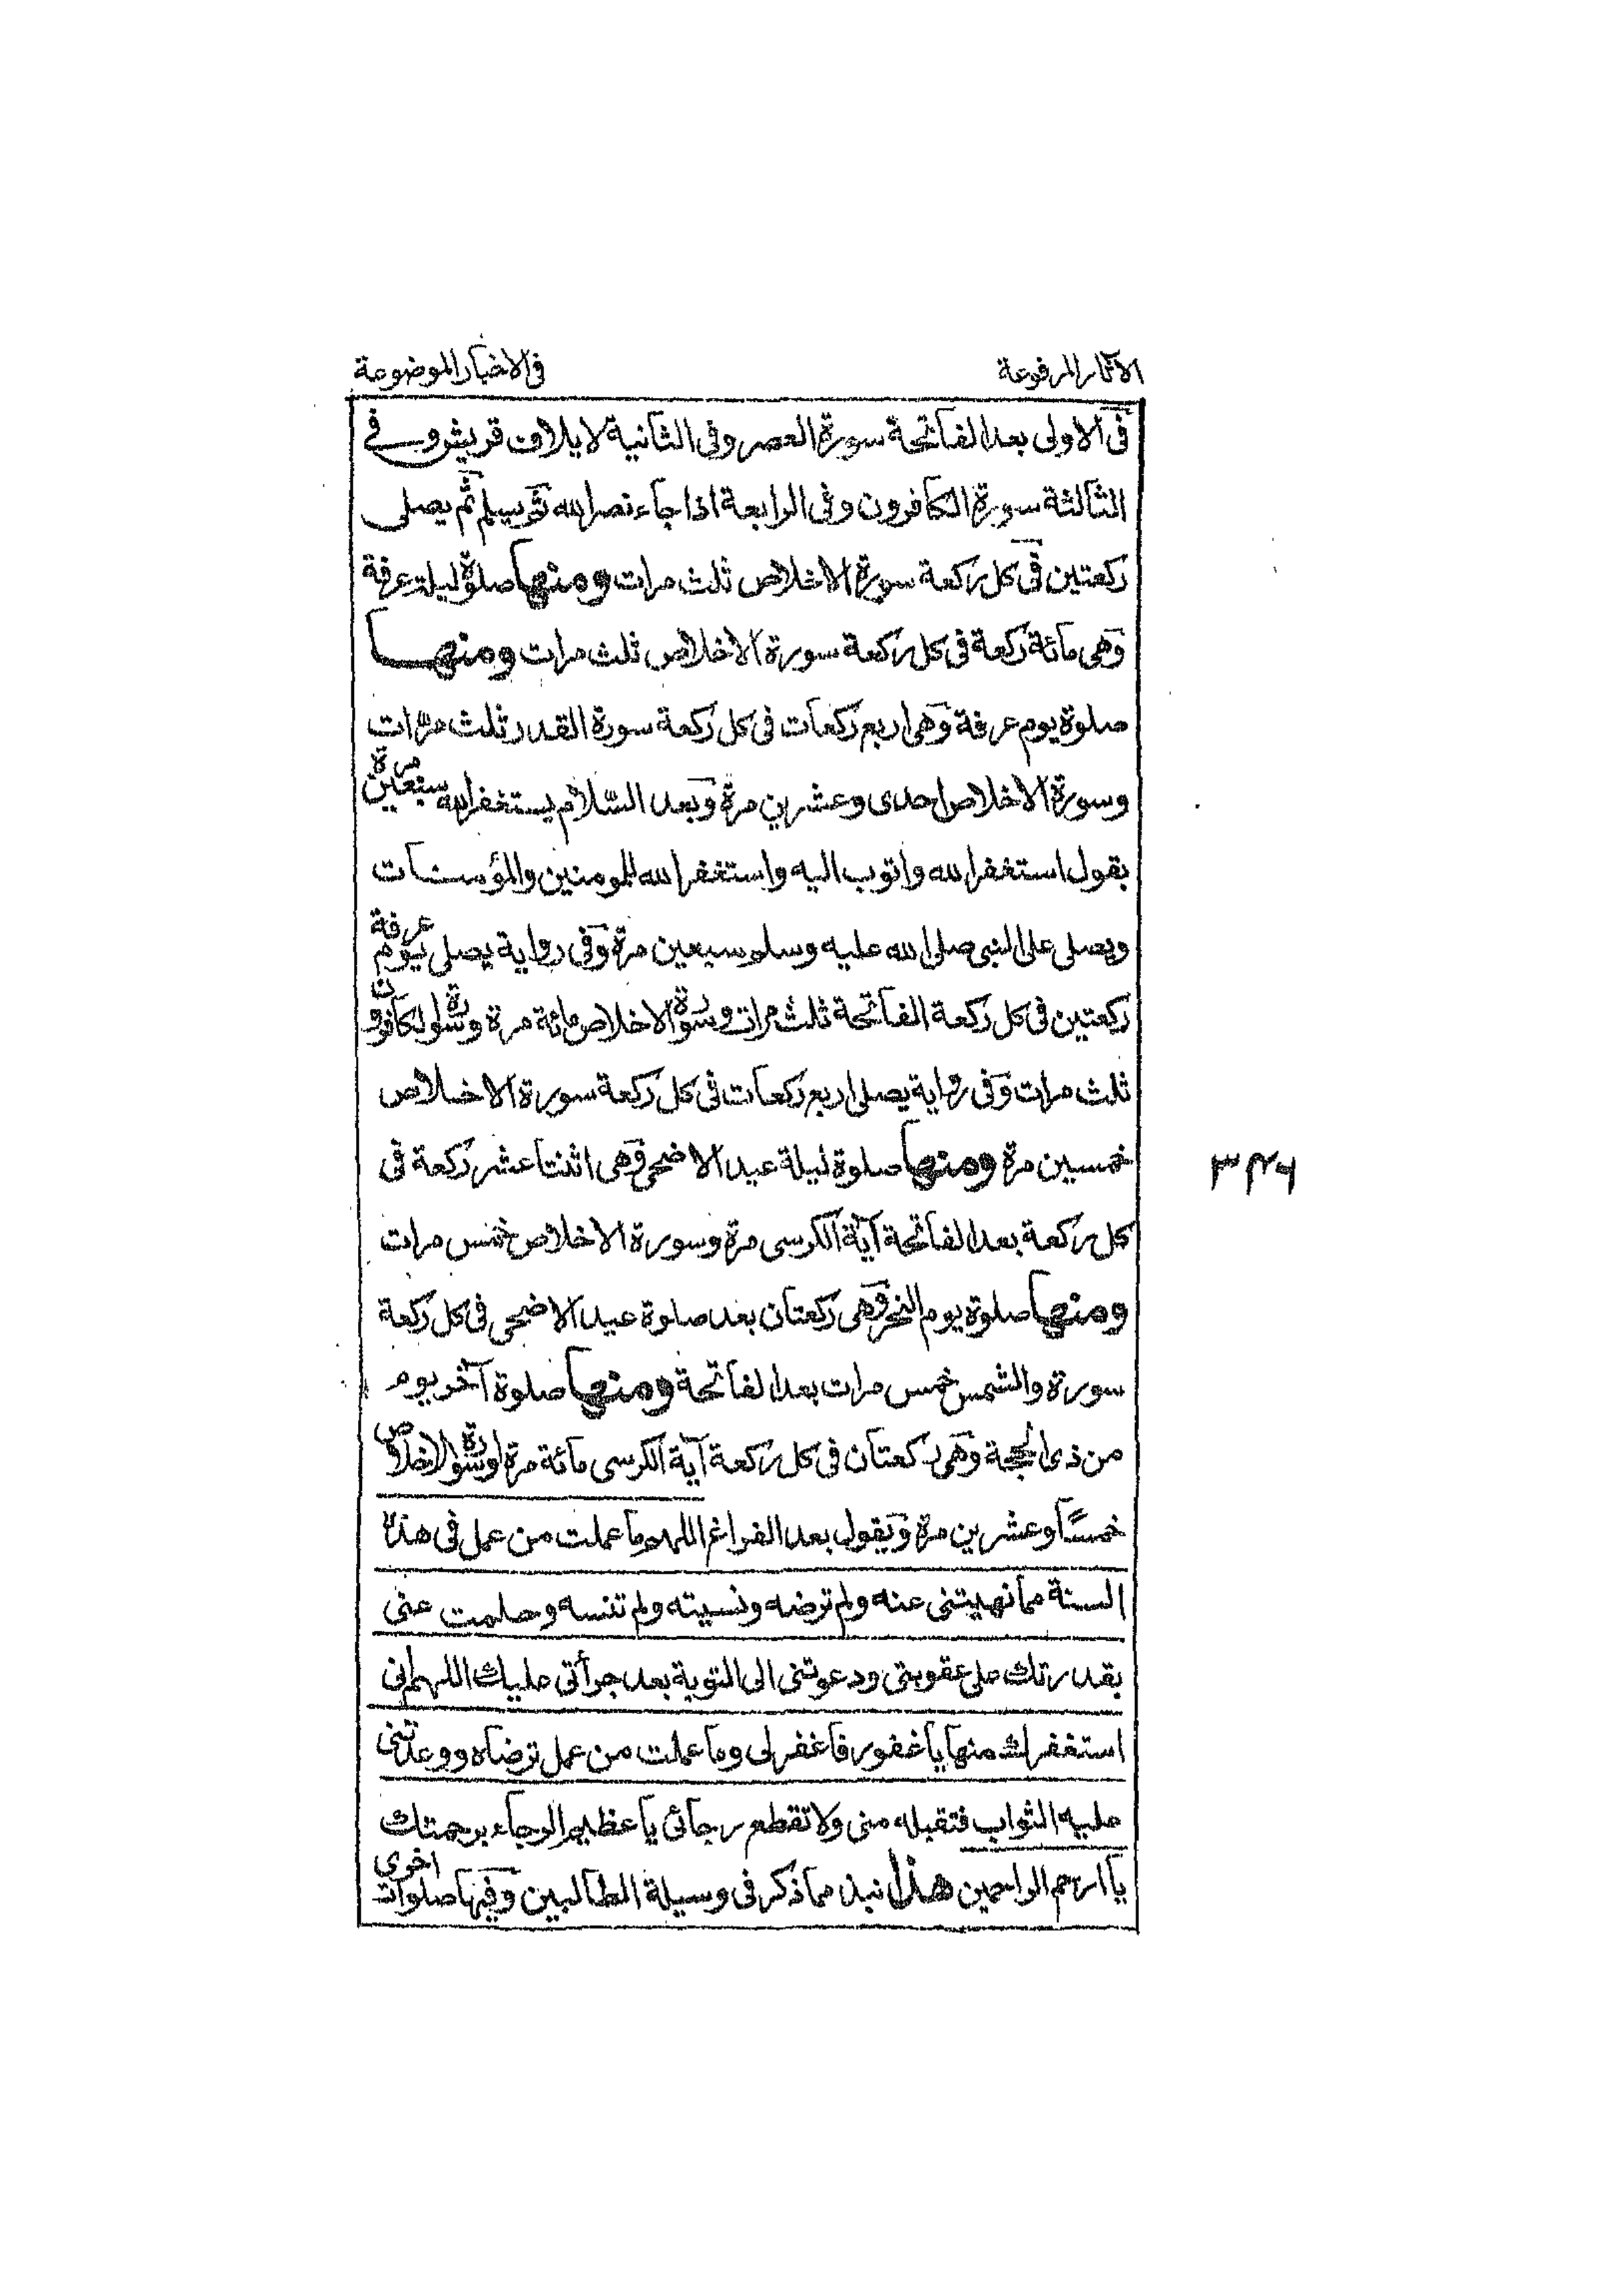 الآثار المرفوعة
فى الاخبار الموضوعة
فى الاولى بعد الفاتحة سورة العصر وفى الثانية لايلاف قريش وفى
الثالثة سورة الكافرون وفى الرابعة اذا جاء نصر الله ثم يسلم ثم يصلى
ركعتين فى كل ركعة سورة الاخلاص ثلث مرات ومنها صلوة ليلة عرفة
وهى مائة ركعة فى كل ركعة سورة الاخلاص ثلث مرات ومنها
صلوة يوم عرفة وهى اربع ركعات فى كل ركعة سورة القدر ثلث مرات
وسورة الاخلاص احدى وعشرين مرة وبعد السلام يستغفر الله سبعين مرة
بقول استغفر الله واتوب اليه واستغفر الله للمومنين والمؤمنات
ويصلى على النبى صلى الله عليه وسلم سبعين مرة وفى رواية يصلى يوم عرفة
ركعتين فى كل ركعة الفاتحة ثلث مرات وسورة الاخلاص مائة مرة وسورة الكافرون
ثلث مرات وفى رواية يصلى اربع ركعات فى كل ركعة سورة الاخلاص
خمسين مرة ومنها صلوة ليلة عيد الاضحى وهى اثنتا عشر ركعة فى
كل ركعة بعد الفاتحة آية الكرسى مرة وسورة الاخلاص خمس مرات
ومنها صلوة يوم النحر وهى ركعتان بعد صلوة عيد الاضحى فى كل ركعة
سورة والشمس خمس مرات بعد الفاتحة ومنها صلوة آخر يوم
من ذى الحجة وهى ركعتان فى كل ركعة آية الكرسى مائة مرة او سورة الاخلاص
خمسًا وعشرين مرة ويقول بعد الفراغ اللهم وما عملت من عمل فى هذه
السنة مما نهيتنى عنه ولم ترضه ونسيته ولم تنسه وحلمت عنى
بقدرتك على عقوبتى ودعوتنى الى التوبة بعد جرأتى عليك اللهم انى
استغفرك منها يا غفور فاغفر لى وما عملت من عمل ترضاه ووعدتنى
عليه الثواب فتقبله منى ولا تقطع رجائى يا عظيم الرجاء برحمتك
يا ارحم الراحمين هذا نبذ مما ذكر فى وسيلة الطالبين وفيها صلوات اخرى
٣٤٦